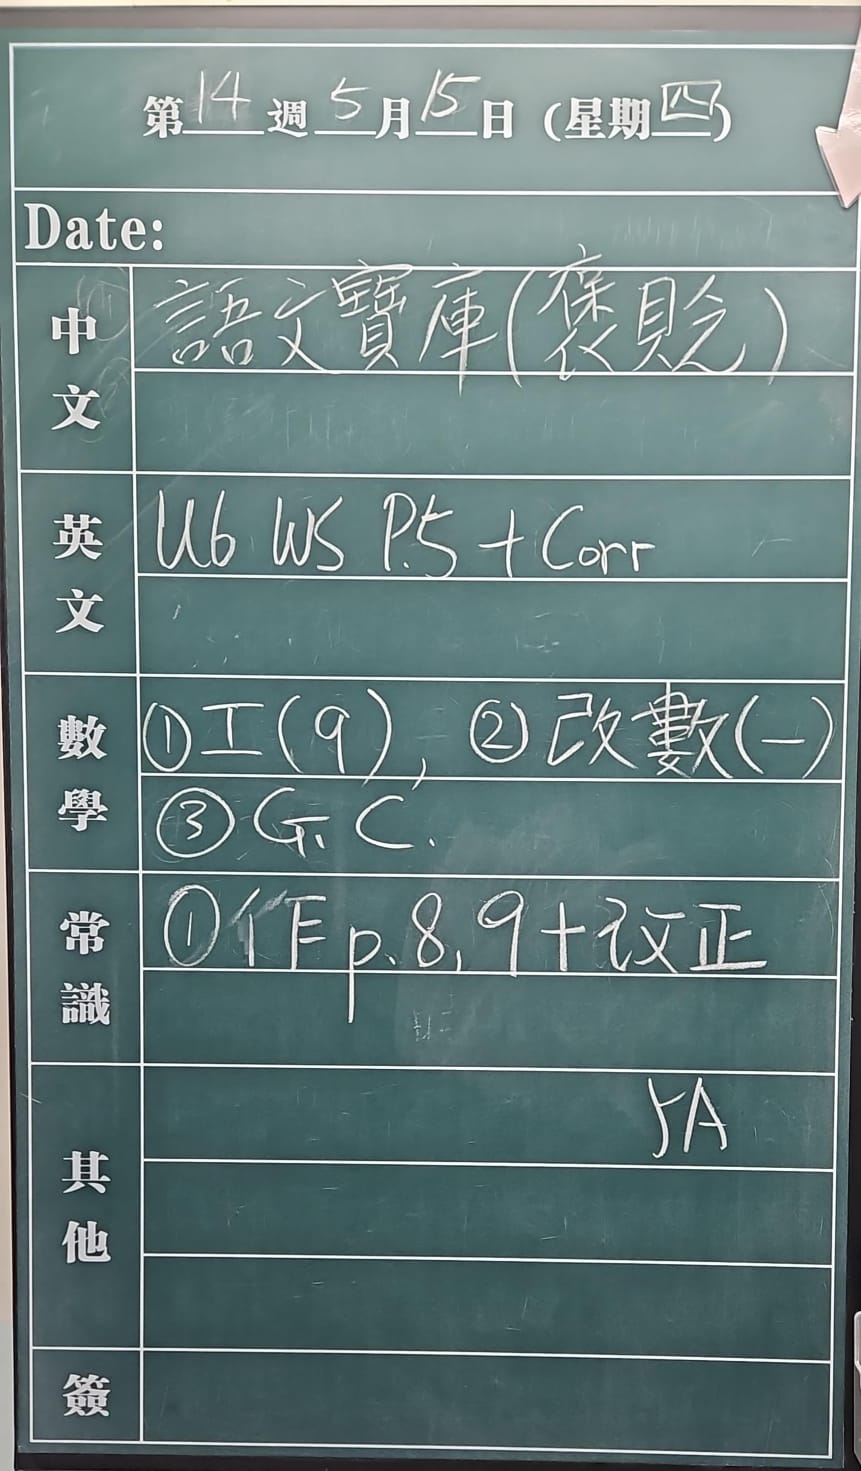 第14週5月15日(星期四)
Date:
中文
語文寶庫(褒貶)
英文
U6 WS P.5 + Corr
數學
①工(9), ②改數(一)
③G.C.
常識
①作p.8,9+改正
其他
YA
簽